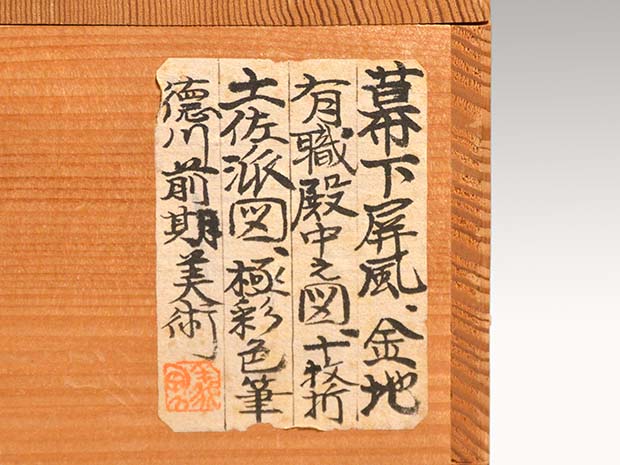 幕下屏風、金地
有職殿中之図、十枚折
土佐派図、極彩色筆
徳川前期美術